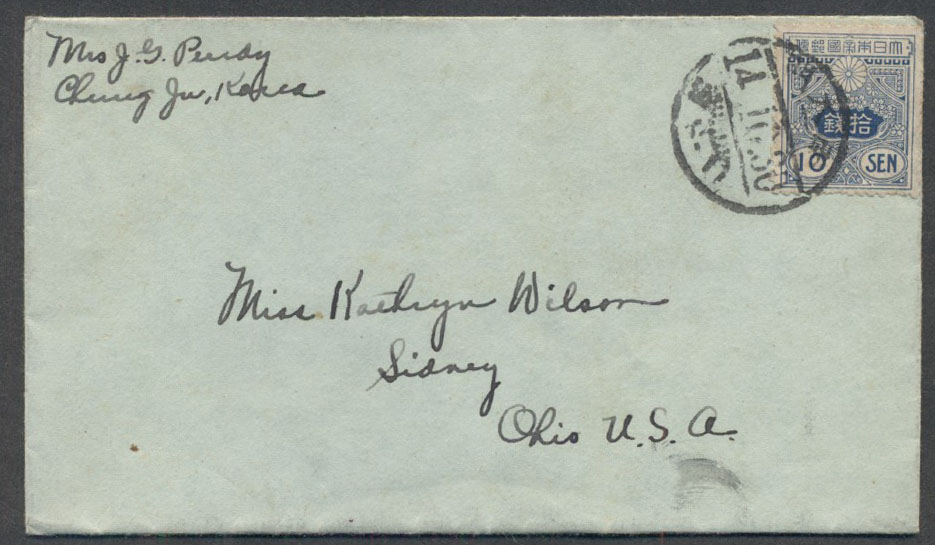 Mrs J. G. Purdy
Chung Ju, Korea
大日本帝國郵便
拾錢
10 SEN
14.10.30
Miss Kathryn Wilson
Sidney
Ohio U.S.A.